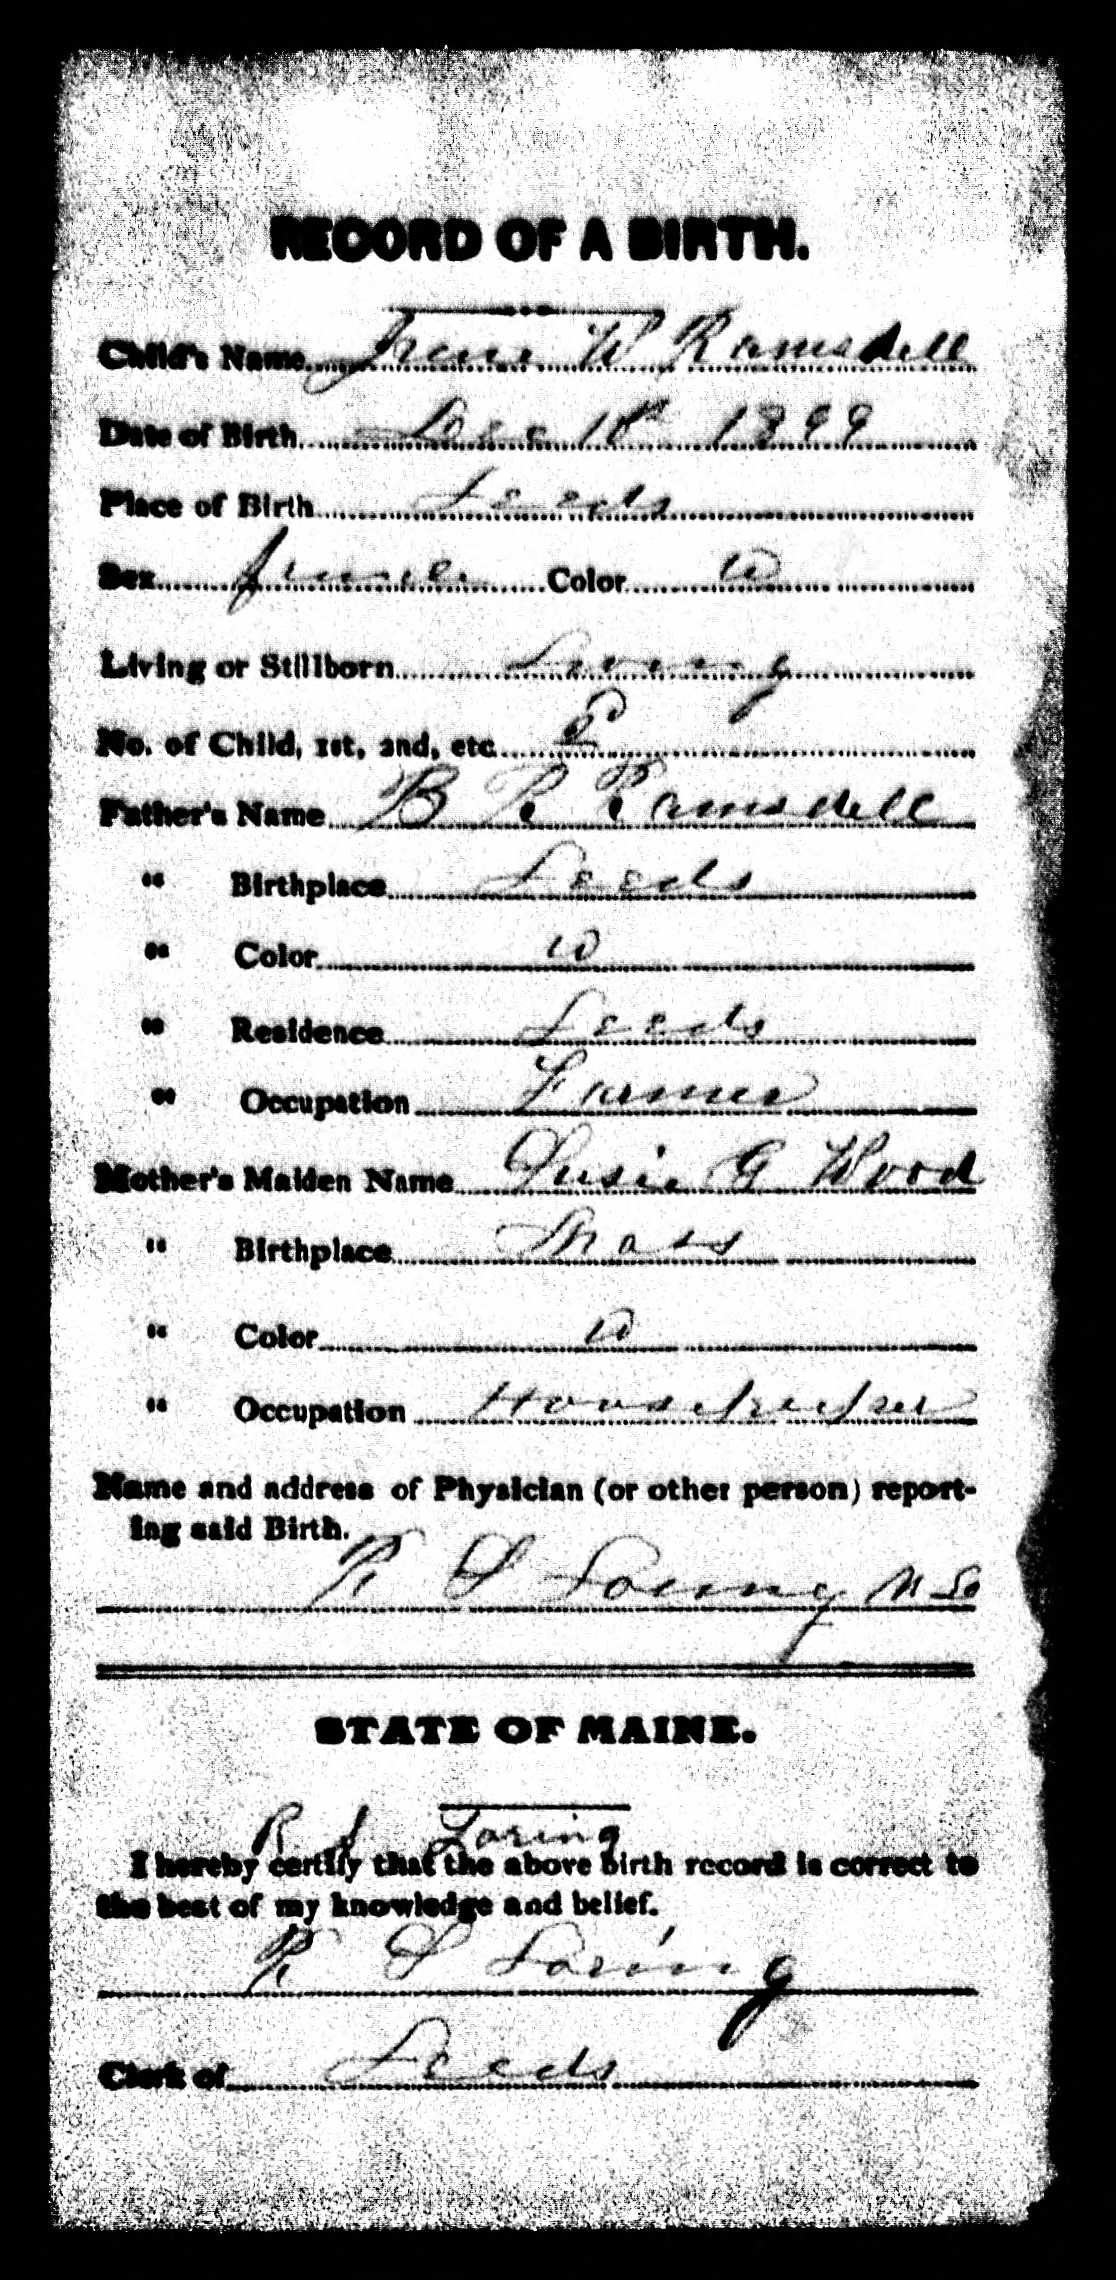 RECORD OF A BIRTH.
Child's Name Irene W Ramsdell
Date of Birth Dec 1899
Place of Birth Leeds
Sex Color W
Living or Stillborn Living
No. of Child, 1st, 2nd, etc
Father's Name B R Ramsdell
" Birthplace Leeds
" Color W
" Residence Leeds
" Occupation Farmer
Mother's Maiden Name Susie G Wood
" Birthplace Mass
" Color W
" Occupation Housekeeper
Name and address of Physician (or other person) report-
ing said Birth.
R S Loring
STATE OF MAINE.
R S Loring
I hereby certify that the above birth record is correct to
the best of my knowledge and belief.
R S Loring
Clerk of Leeds